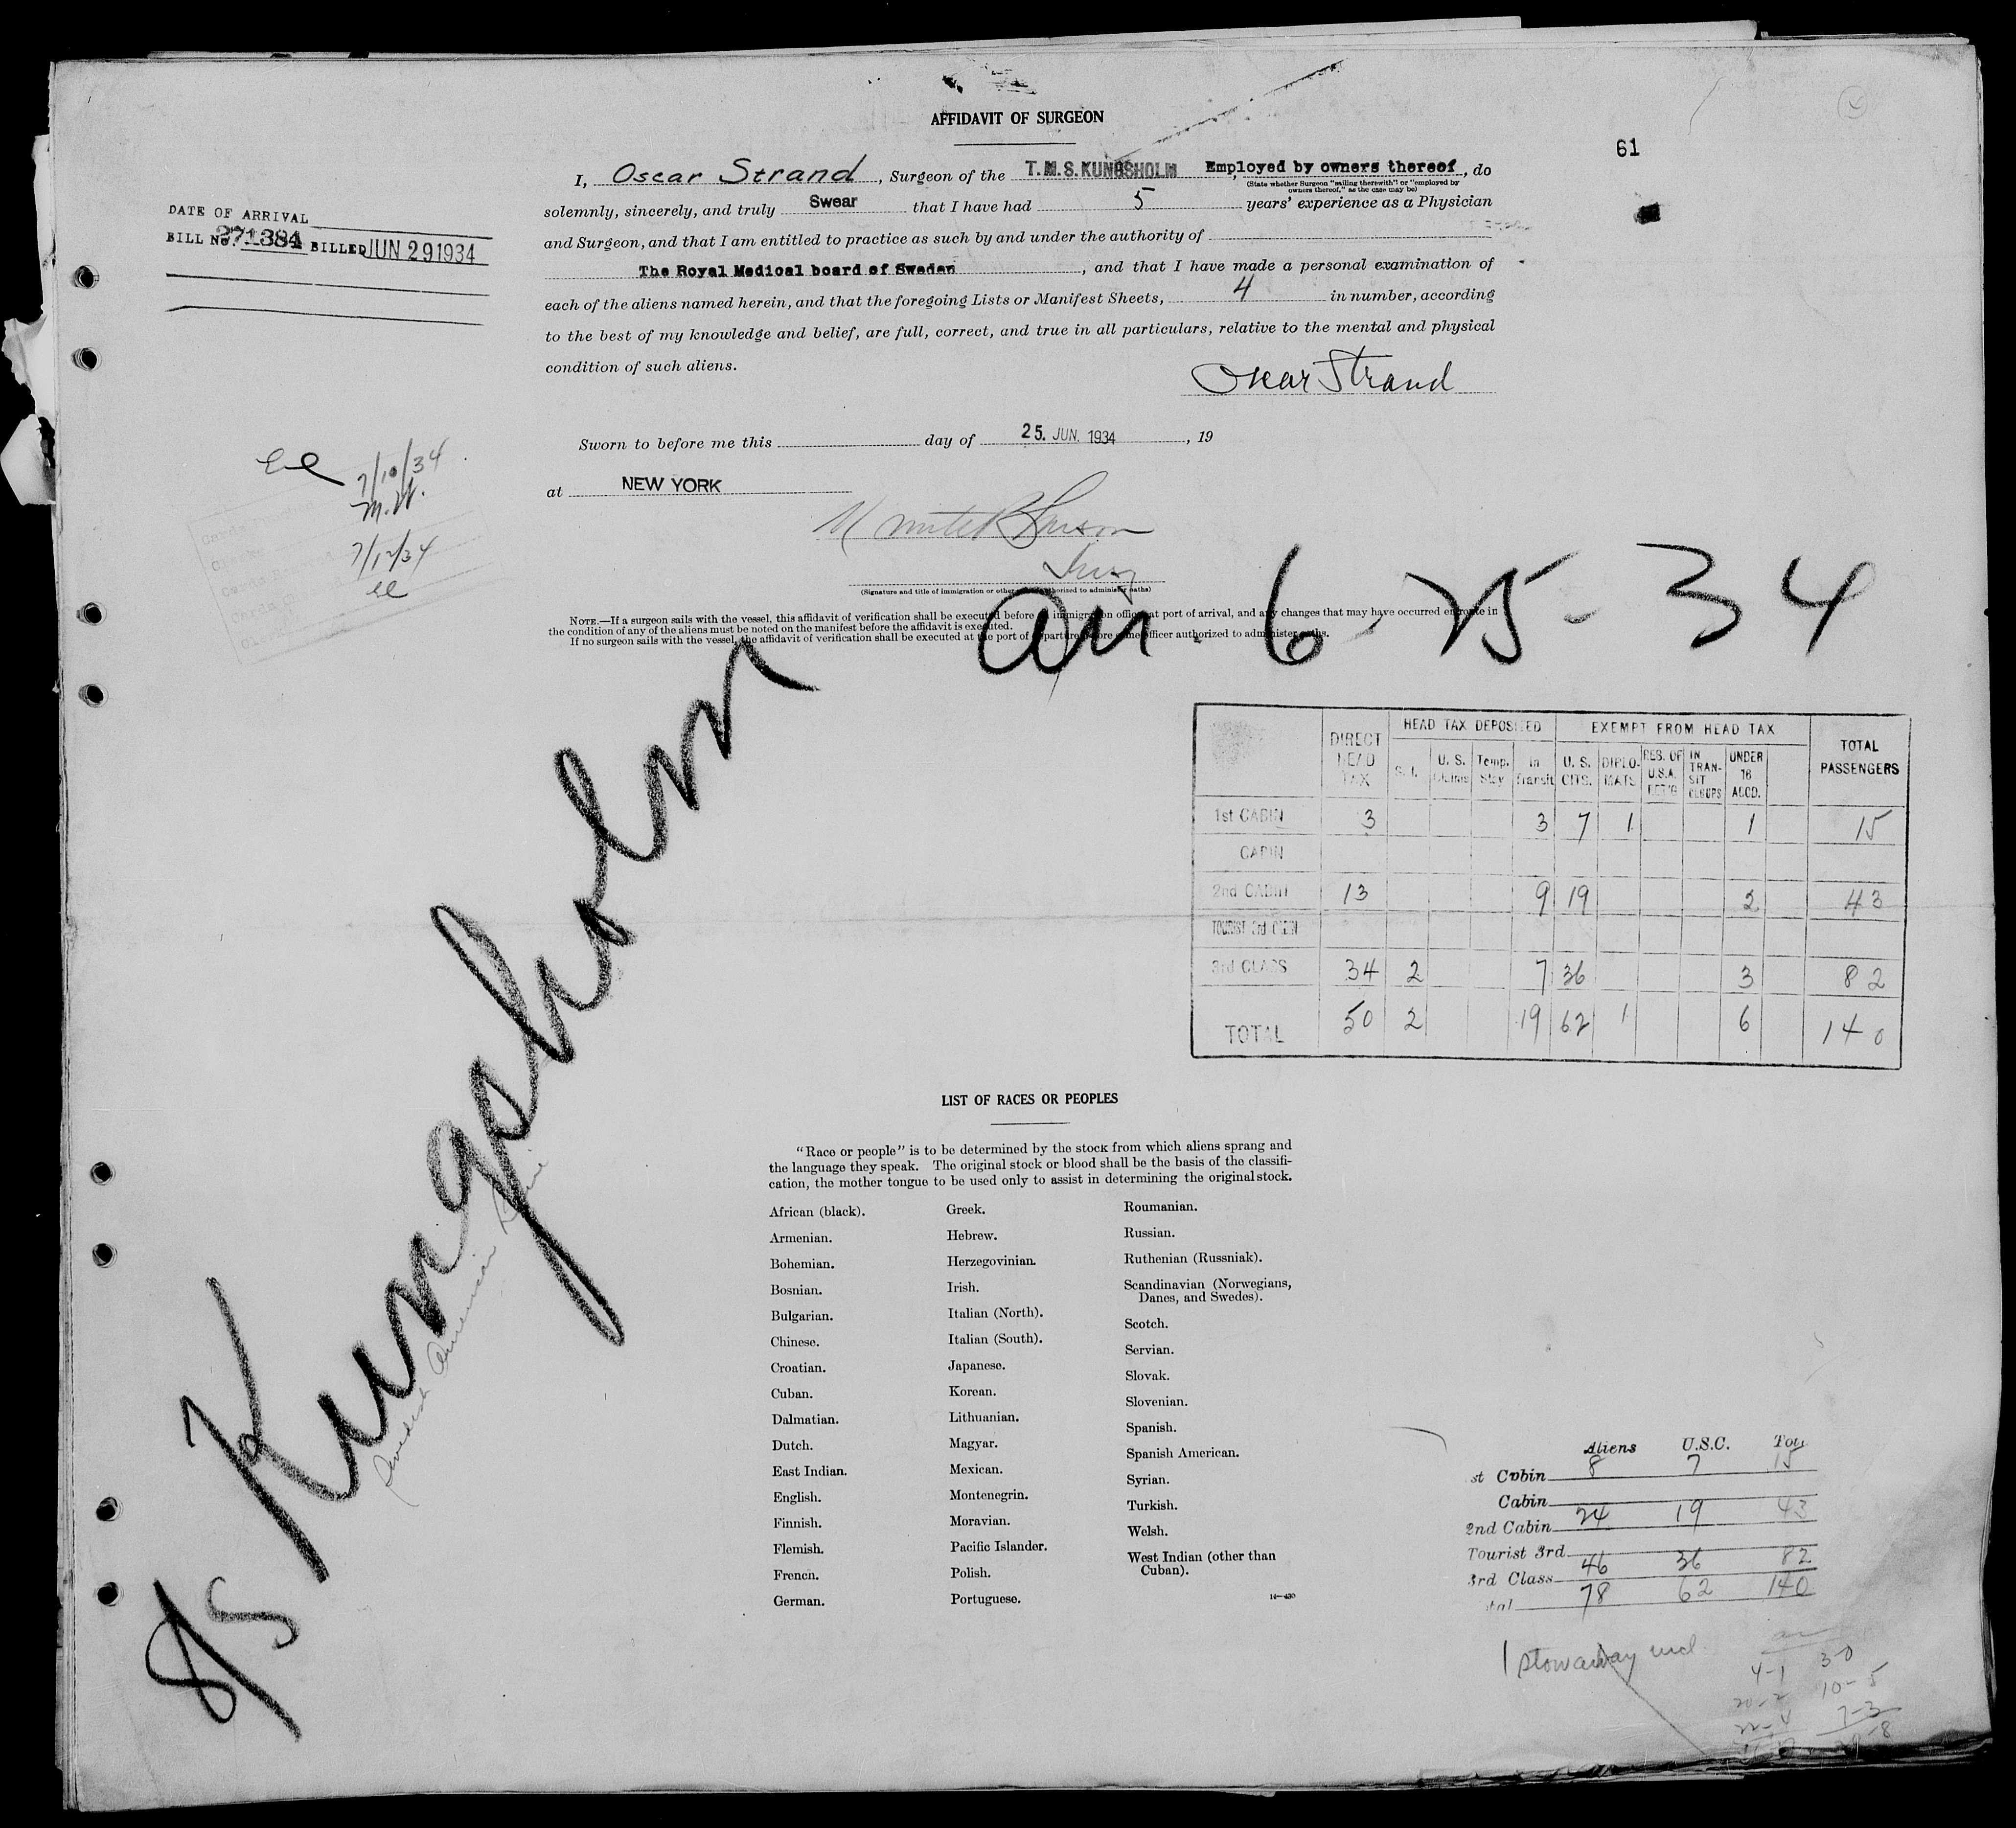 AFFIDAVIT OF SURGEON
61
I, Oscar Strand, Surgeon of the T.M.S. KUNGSHOLM Employed by owners thereof, do
(State whether Surgeon "sailing therewith" or "employed by
owners thereof," as the case may be)
solemnly, sincerely, and truly Swear that I have had 5 years' experience as a Physician
and Surgeon, and that I am entitled to practice as such by and under the authority of
The Royal Medical board of Sweden, and that I have made a personal examination of
each of the aliens named herein, and that the foregoing Lists or Manifest Sheets, 4 in number, according
to the best of my knowledge and belief, are full, correct, and true in all particulars, relative to the mental and physical
condition of such aliens.
Oscar Strand
DATE OF ARRIVAL
BILL No. 271384 BILLED JUN 29 1934
Sworn to before me this day of 25. JUN. 1934, 19
at NEW YORK
7/10/34
M.W.
7/12/34
(Signature and title of immigration or other authorized to administer oaths)
NOTE.—If a surgeon sails with the vessel, this affidavit of verification shall be executed before immigration officer at port of arrival, and any changes that may have occurred en route in
the condition of any of the aliens must be noted on the manifest before the affidavit is executed.
If no surgeon sails with the vessel, the affidavit of verification shall be executed at the port of departure before some officer authorized to administer oaths.
arr. 6-25-34
Kungsholm
Swedish American Line
8/5
DIRECT HEAD TAX HEAD TAX DEPOSITED EXEMPT FROM HEAD TAX TOTAL PASSENGERS
S. I. U. S. Claims Temp. Stay In Transit U. S. CITS. DIPLO-MATS RES. OF U.S.A. RET'G IN TRAN-SIT GROUPS UNDER 16 ACCD.
1st CABIN 3 3 7 1 1 15
CABIN
2nd CABIN 13 9 19 2 43
TOURIST 3rd CABIN
3rd CLASS 34 2 7 36 3 82
TOTAL 50 2 19 62 1 6 140
LIST OF RACES OR PEOPLES
"Race or people" is to be determined by the stock from which aliens sprang and
the language they speak. The original stock or blood shall be the basis of the classifi-
cation, the mother tongue to be used only to assist in determining the original stock.
African (black).
Armenian.
Bohemian.
Bosnian.
Bulgarian.
Chinese.
Croatian.
Cuban.
Dalmatian.
Dutch.
East Indian.
English.
Finnish.
Flemish.
French.
German.
Greek.
Hebrew.
Herzegovinian.
Irish.
Italian (North).
Italian (South).
Japanese.
Korean.
Lithuanian.
Magyar.
Mexican.
Montenegrin.
Moravian.
Pacific Islander.
Polish.
Portuguese.
Roumanian.
Russian.
Ruthenian (Russniak).
Scandinavian (Norwegians,
Danes, and Swedes).
Scotch.
Servian.
Slovak.
Slovenian.
Spanish.
Spanish American.
Syrian.
Turkish.
Welsh.
West Indian (other than
Cuban).
Aliens U.S.C. Tot
st Cabin 8 7 15
Cabin
2nd Cabin 24 19 43
Tourist 3rd
3rd Class 46 36 82
tal 78 62 140
1 stowaway incl.
4-1 3-0
20-2 10-5
22-4 7-3